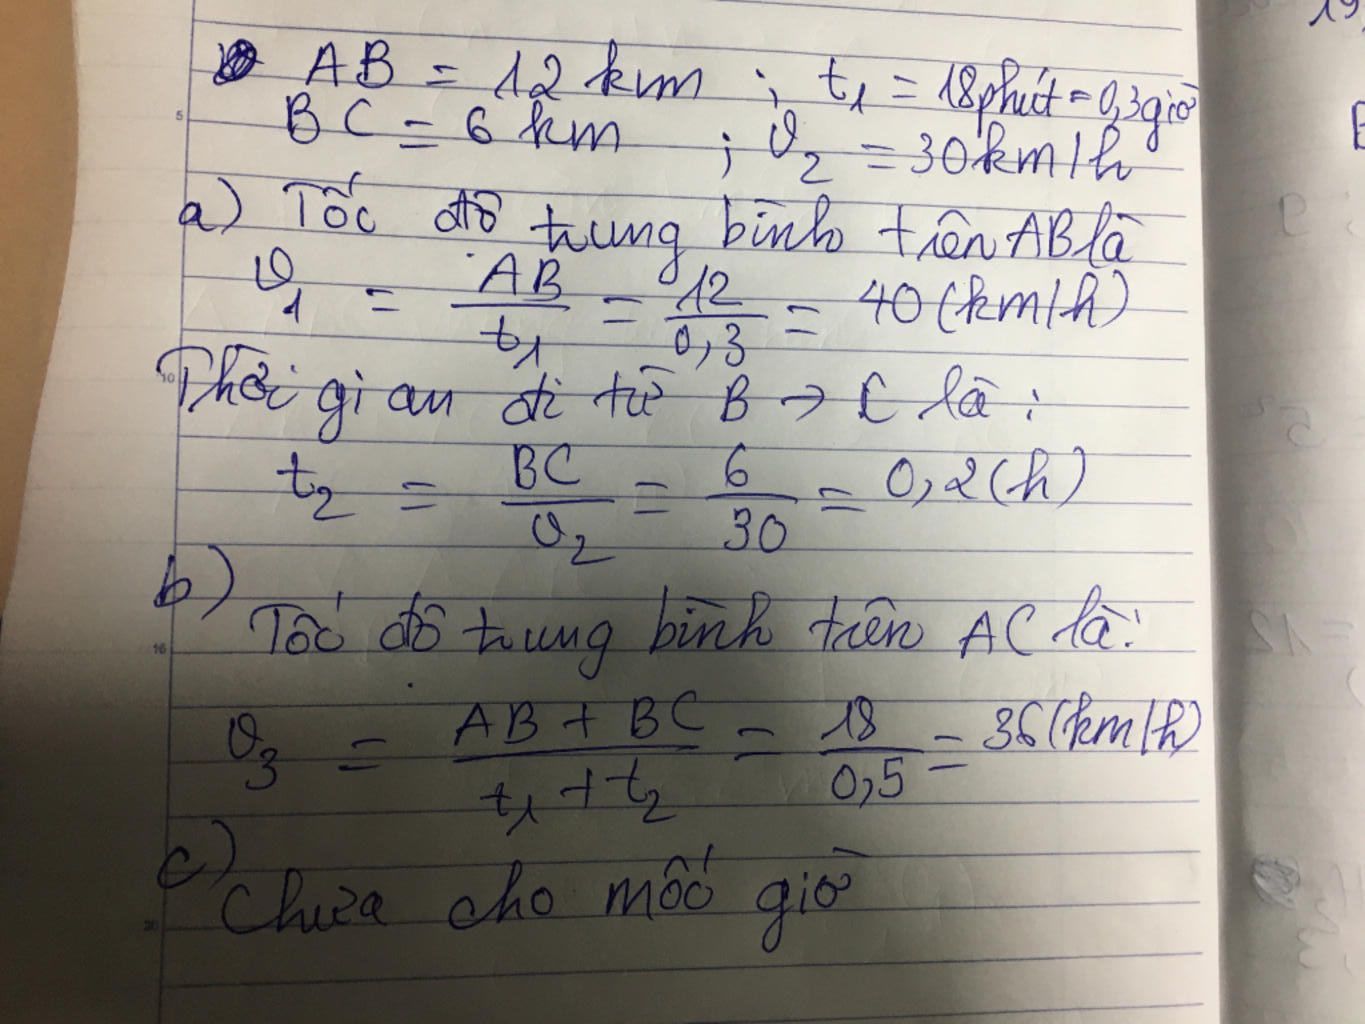 AB = 12 km ; t₁ = 18 phút = 0,3 giờ
BC = 6 km ; v₂ = 30 km/h
a) Tốc độ trung bình trên AB là
v₁ = AB/t₁ = 12/0,3 = 40 (km/h)
Thời gian đi từ B → C là :
t₂ = BC/v₂ = 6/30 = 0,2 (h)
b)
Tốc độ trung bình trên AC là :
v₃ = (AB + BC)/(t₁ + t₂) = 18/0,5 = 36 (km/h)
c)
Chưa cho mốc giờ